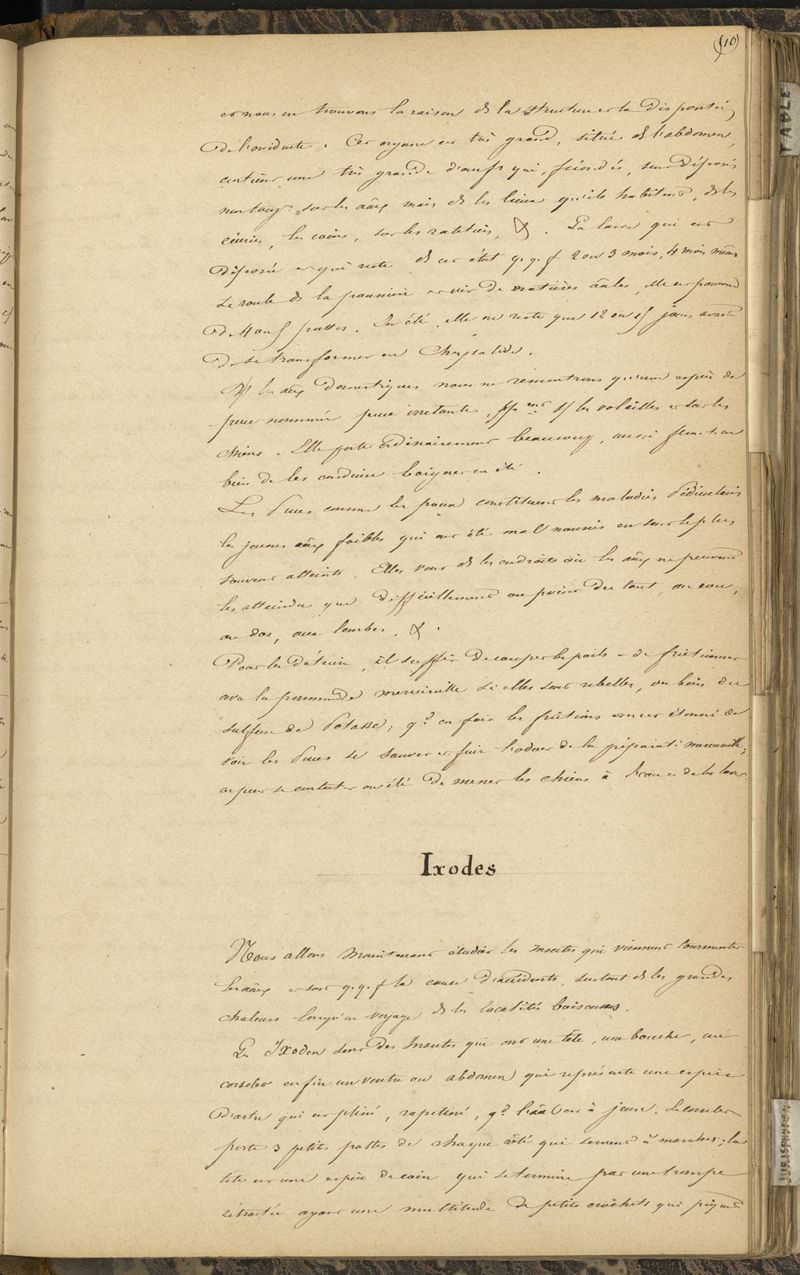 (10)
et nous en trouvons la raison ds la structure et la disposition
de l'oviducte. Cet organe est très grand, situé ds l'abdomen,
contient une très grande d'œufs qui, fécondés, sont déposés
non touj. sur les aãux mais ds les lieux qu'ils habitent, ds les
écuries, les coins, sur les rateliers, &. La larve qui est
déposée et qui reste ds cet état q.q.f 2 ou 3 mois, 4 mois même
se roule ds la poussière et vit de matières aãles, elle est pourvue
de 4 ou 5 pattes. En été, elle ne reste que 12 ou 15 jours avant
de se transformer en Chrysalide.
les aãux domestiques nous ne rencontrons qu'une espèce de
puce nommée puce irritante, sur les volailles et sur les
chiens. Elle pulle ordinairement beaucoup, aussi faut-il
bien de les conduire baigner en été.
Les Puces comme les poux constituent les maladies Pédiculaires
les jeunes aãux faibles qui ont été mal nourris en sont le plus
souvent atteints. Elles vont ds les endroits où les aãux ne peuvent
les atteindre que difficilement ou point du tout, au cou,
au dos, aux lombes, &.
Pour les détruire, il suffit de couper les poils et de frictionner
avec la pommade mercurielle si elles sont rebelles, ou bien du
sulfure de Potasse; qd on fait les frictions on est étonné de
voir les Puces se sauver et fuir l'odeur de la préparati mercurielle;
on peut se contenter en été de mener les chiens à l'eau et de les laver.
Ixodes
Nous allons maintenant étudier les insectes qui viennent tourmenter
les aãux et sont q.q.f la cause d'accidents, surtout ds les grandes
chaleurs lorsqu'on voyage ds les localités boiseuses.
Les Ixodes sont des Insectes qui ont une tête, une bouche, un
corselet enfin un ventre ou abdomen qui représente une espèce
d'outre qui est plissé, rapetissé, qd l'aãl est à jeun. Le corselet
porte 3 petites pattes de chaque côté qui servent à marcher; la
tête est une espèce de coin qui se termine par une trompe
rétractile ayant une multitude de petits crochets qui piquent
TABLE
JURISPRUDEN